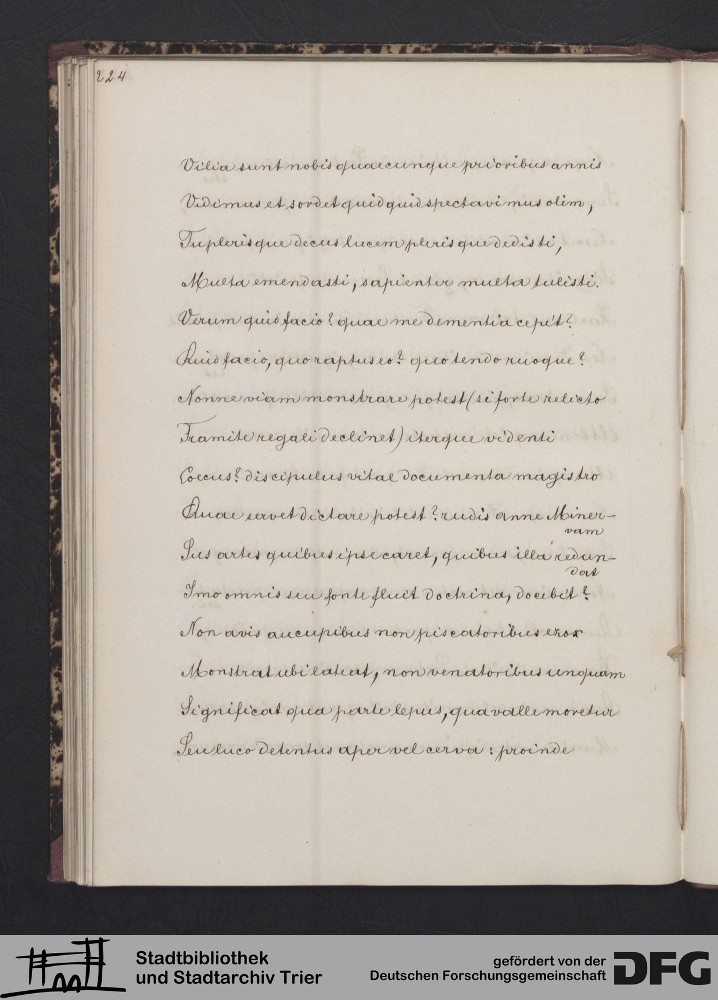 224
Vilia sunt nobis quaecunque prioribus annis
Vidimus et sordet quidquid spectavimus olim,
Tu plerisque decus lucem plerisque dedisti,
Multa emendasti, sapienter multa tulisti.
Verum quid facio? quae me dementia cepit?
Quid facio, quo raptus eo? quo tendo ruoque?
Nonne viam monstrare potest (si forte relicto
Tramite regali declinet) iterque videnti
Coecus? discipulus vitae documenta magistro
Quae servet dictare potest? rudis anne Miner-
vam
Sus artes quibus ipse caret, quibus illa redun-
dat
Imo omnis seu fonte fluit doctrina, docebit?
Non avis aucupibus non piscatoribus exox
Monstrat ubi lateat, non venatoribus unquam
Significat qua parte lepus, qua valle moretur
Seu luco detentus aper vel cerva: proinde
Stadtbibliothek
und Stadtarchiv Trier
gefördert von der
Deutschen Forschungsgemeinschaft
DFG